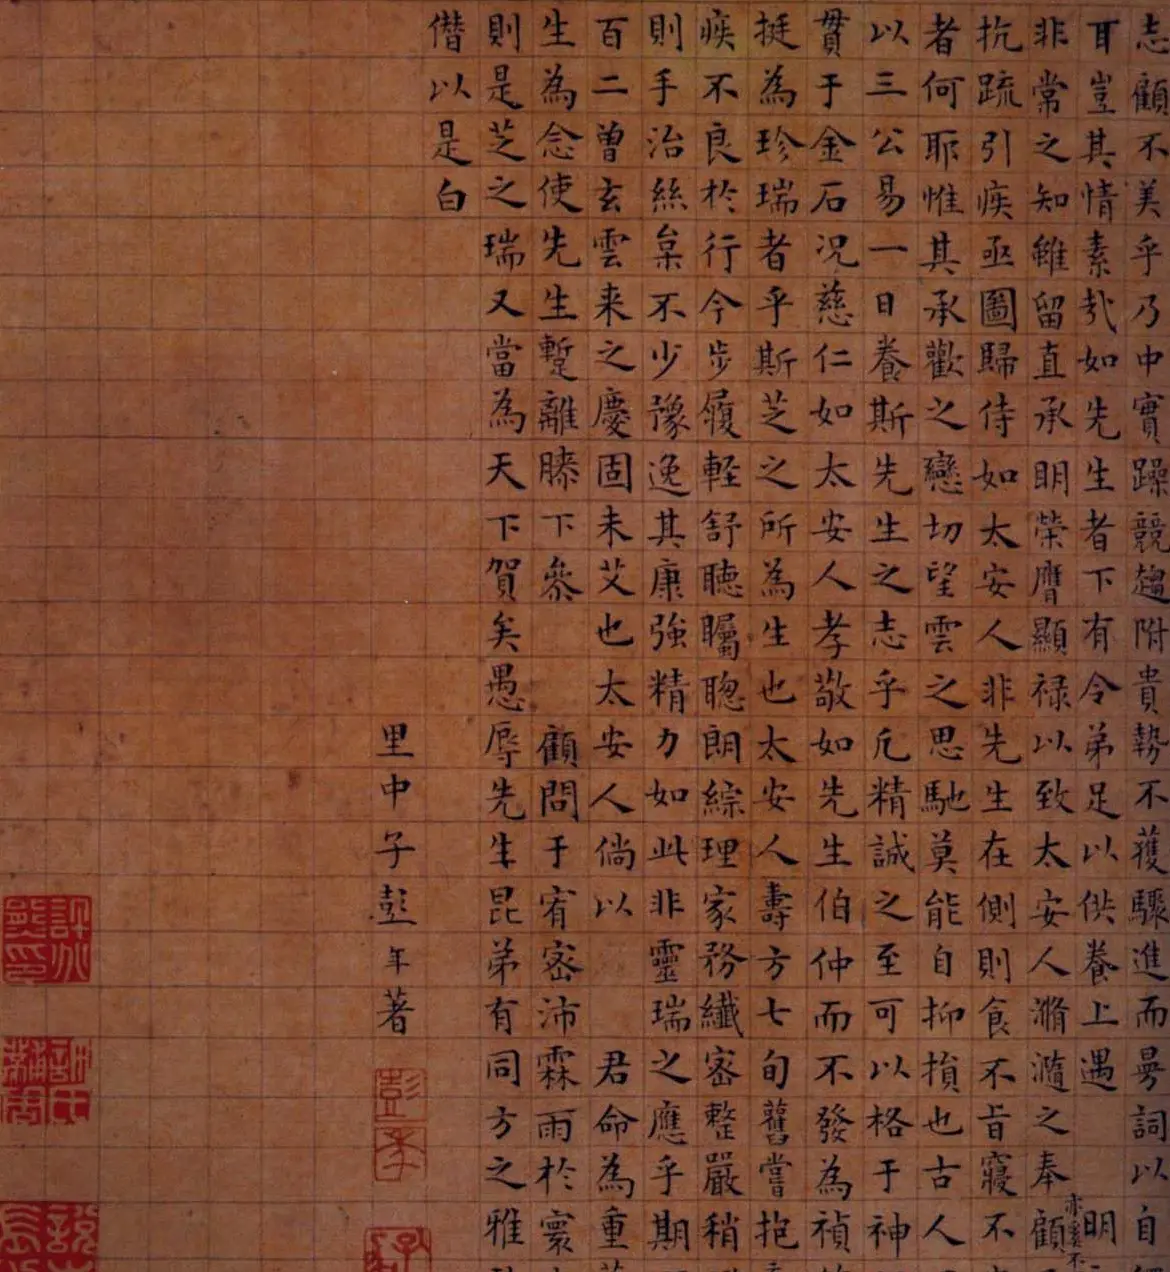 志顧不美乎乃中實躁競趨附貴勢不獲驟進而旻詞以自
耳豈其情素㢤如先生者下有令弟足以供養上遇 明
亦奚不
非常之知雖留直承明榮膺顯禄以致太安人滫瀡之奉顧
抗疏引疾亟圖歸侍如太安人非先生在側則食不旨寢不
者何耶惟其承歡之戀切望雲之思馳莫能自抑損也古人
以三公易一日養斯先生之志乎凢精誠之至可以格于神
貫于金石況慈仁如太安人孝敬如先生伯仲而不發為禎
挺為珍瑞者乎斯芝之所為生也太安人壽方七旬舊嘗抱
疾不良於行今步履軽舒聽矚聦朗綜理家務纖宻整嚴稍
則手治絲枲不少豫逸其康強精力如此非靈瑞之應乎期
百二曾玄雲来之慶固未艾也太安人倘以 君命為重
生為念使先生蹔離膝下叅 顧問于宥宻沛霖雨於寰
則是芝之瑞又當為天下賀矣愚辱先生昆弟有同方之雅
僭以是白
里中子彭年著
彭年